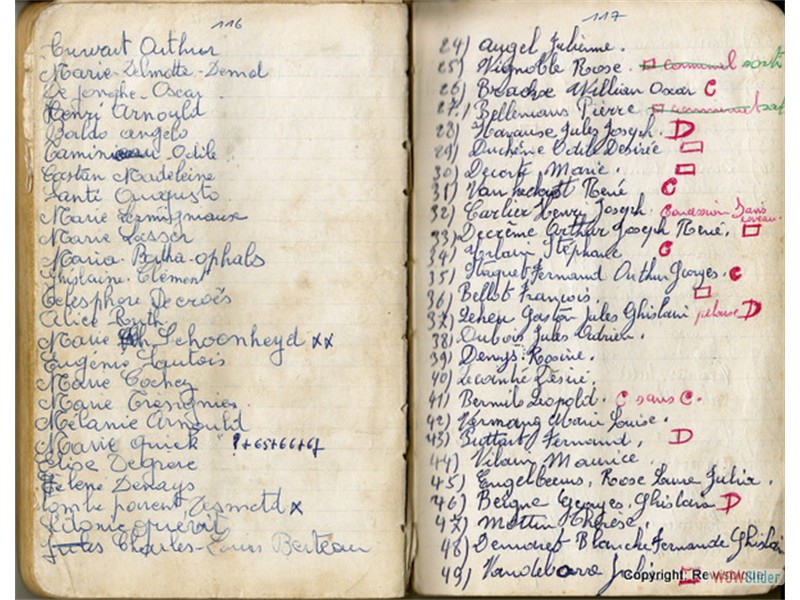 116
Curvart Arthur
Marie-Delmotte-Demol
De Jonghe-Oscar
Henri Arnould
Baldo Angelo
Odile
Castin Madeleine
Santi Augusto
Marie Lermigniaux
Marie Lasser
Maria-Batha-ophals
Ghislaine-Clément
Télesphore Decroës
Alice Roth
Marie Schoonheyd xx
Eugénie Hautois
Marie Cochez
Marie Trésignies
Mélanie Arnould
Marie quick ?+65+66+67
Elise Degrove
Hélène Denays
tombe parent, Desmetd x
Sidonie
Jules Charles-Louis Berteau
117
24) Angel Julienne.
25) Vignoble Rose. communal
26) Brackx Willian Oscar C
27) Bellemans Pierre communal
28) Havause Jules Joseph. D
29) Duchêne Odile Désirée
30) Decorte Marie.
31) René C
32) Carlier Henri Joseph. Concession sans caveau.
33) Decrême Arthur Joseph René.
34) Verlain Stéphane C
35) Staquet Fernand Arthur Georges. C
36) Bellot François.
37) Leheu Gaston Jules Ghislain pelouse D
38) Dubois Jules Adrien.
39) Denys Rosine.
40) Lecomhé Désiré.
41) Bermils Léopold. C sans C.
42) Vermang Marie Louise.
43) Buttart Fernand, D
44) Vilain Maurice
45) Engelbeens, Roose Laure Julia.
46) Beigne Georges Ghislain D
47) Mottin Thérèse.
48) Demaret Blanche Fernande Ghislai
49) Julie
Copyright: Re
WOWSlider